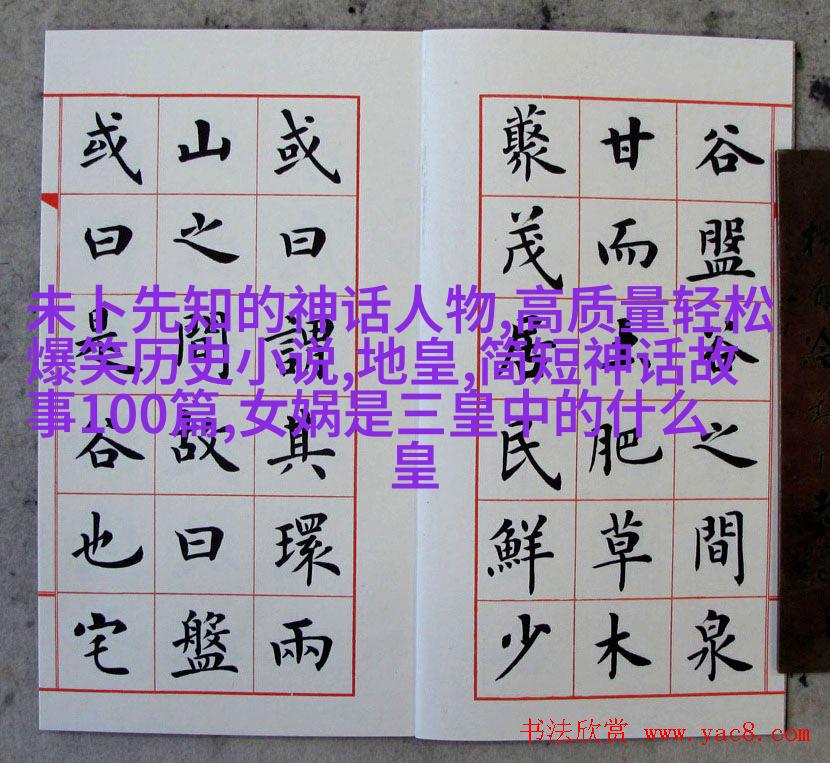 谷盤谷之間泉
甘而土肥草木
藂茂居民鮮少
或曰謂其環兩
山之間故曰盤
或曰是谷也宅
未卜先知的神话人物,高质量轻松
爆笑历史小说,地皇,简短神话故
事100篇,女娲是三皇中的什么
皇
书法欣赏 www.yac8.com